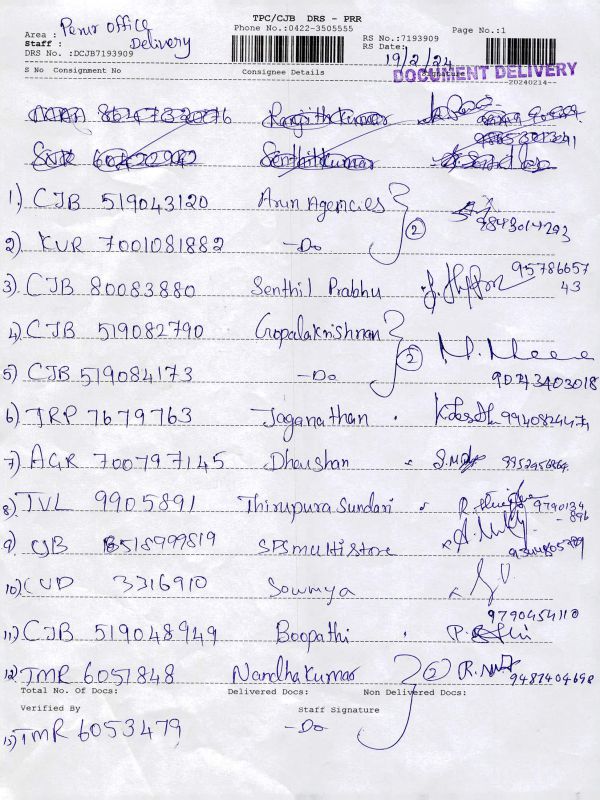 TPC/CJB DRS - PRR
Area : Perur office Phone No.:0422-3505555 RS No.:7193909 Page No.:1
Staff : Delivery RS Date: 19/2/24
DRS No. :DCJB7193909 DOCUMENT DELIVERY
S No Consignment No Consignee Details Signature
--20240214--
Ranjithkumar
Senthilkumar
1) CJB 519043120 Arun Agencies 2 9843014293
2) KUR 7001081882 -Do
3) CJB 80083880 Senthil Prabhu 95786657
43
4) CJB 519082790 Gopalakrishnan 2
5) CJB 519084173 -Do 90243403018
6) TRP 7679763 Jaganathan
7) AGR 700797145 Dhaushan
8) TVL 9905891 Thirupura Sundari 9790134
-896
9) CJB 8518999819 SPS multistore
10) CUD 3316910 Sowmya
9790454110
11) CJB 519048949 Boopathi
12) TMR 6051848 Nandhakumar 2 9487404698
Total No. Of Docs: Delivered Docs: Non Delivered Docs:
Verified By Staff Signature
13) TMR 6053479 -Do